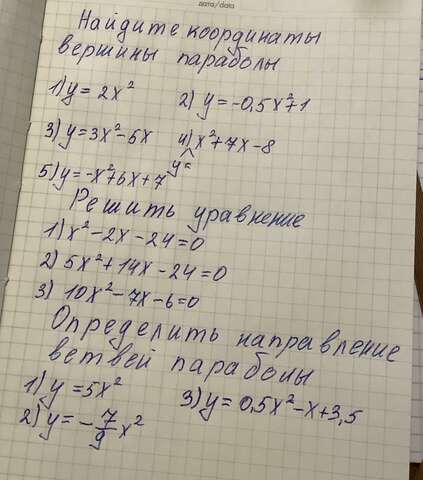 дата/data
Найдите координаты
вершины параболы
1) y = 2x² 2) y = -0,5x²+1
3) y = 3x² - 6x 4) x² + 7x - 8
y =
5) y = -x²+6x+7
Решить уравнение
1) x² - 2x - 24 = 0
2) 5x² + 14x - 24 = 0
3) 10x² - 7x - 6 = 0
Определить направление
ветвей параболы
1) y = 5x² 3) y = 0,5x² - x + 3,5
2) y = - 7/9 x²